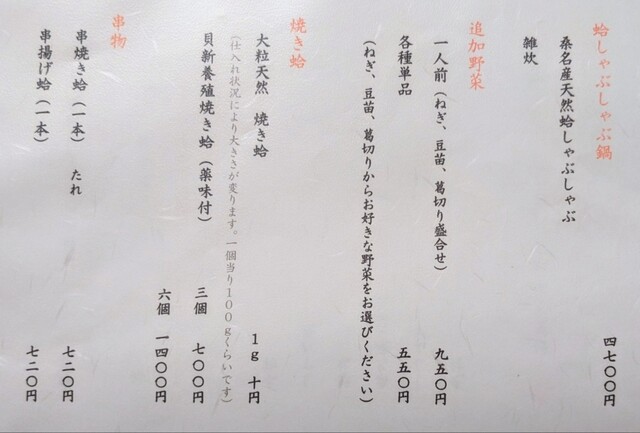 蛤しゃぶしゃぶ鍋
四七〇〇円
桑名産天然蛤しゃぶしゃぶ
雑炊
追加野菜
一人前（ねぎ、豆苗、葛切り盛合せ） 九五〇円
各種単品 五五〇円
（ねぎ、豆苗、葛切りからお好きな野菜をお選びください）
焼き蛤
大粒天然 焼き蛤 1g 十円
（仕入れ状況により大きさが変ります。一個当り100gくらいです）
貝新養殖焼き蛤（薬味付） 三個 七〇〇円
六個 一四〇〇円
串物
串焼き蛤（一本） たれ 七二〇円
串揚げ蛤（一本） 七二〇円